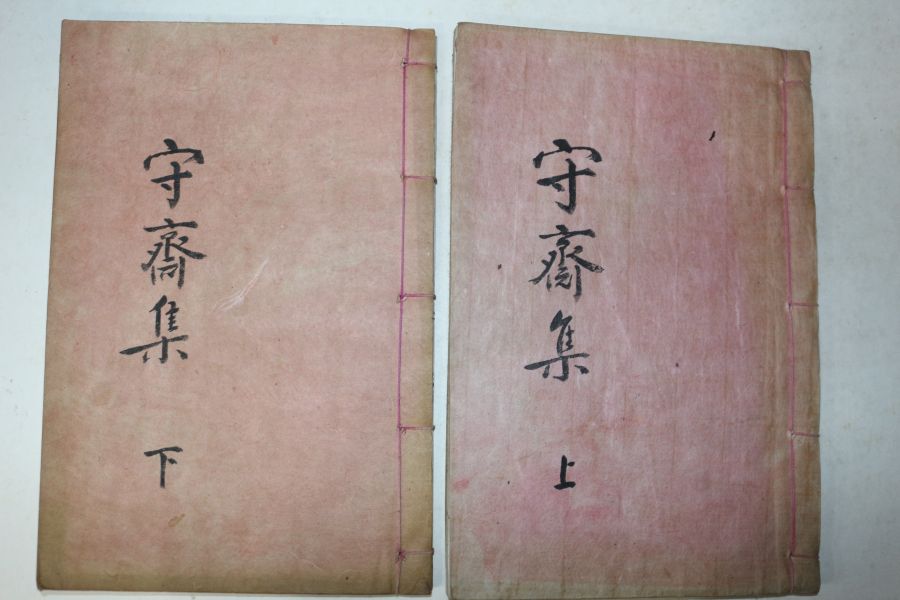 守齋集 上
守齋集 下